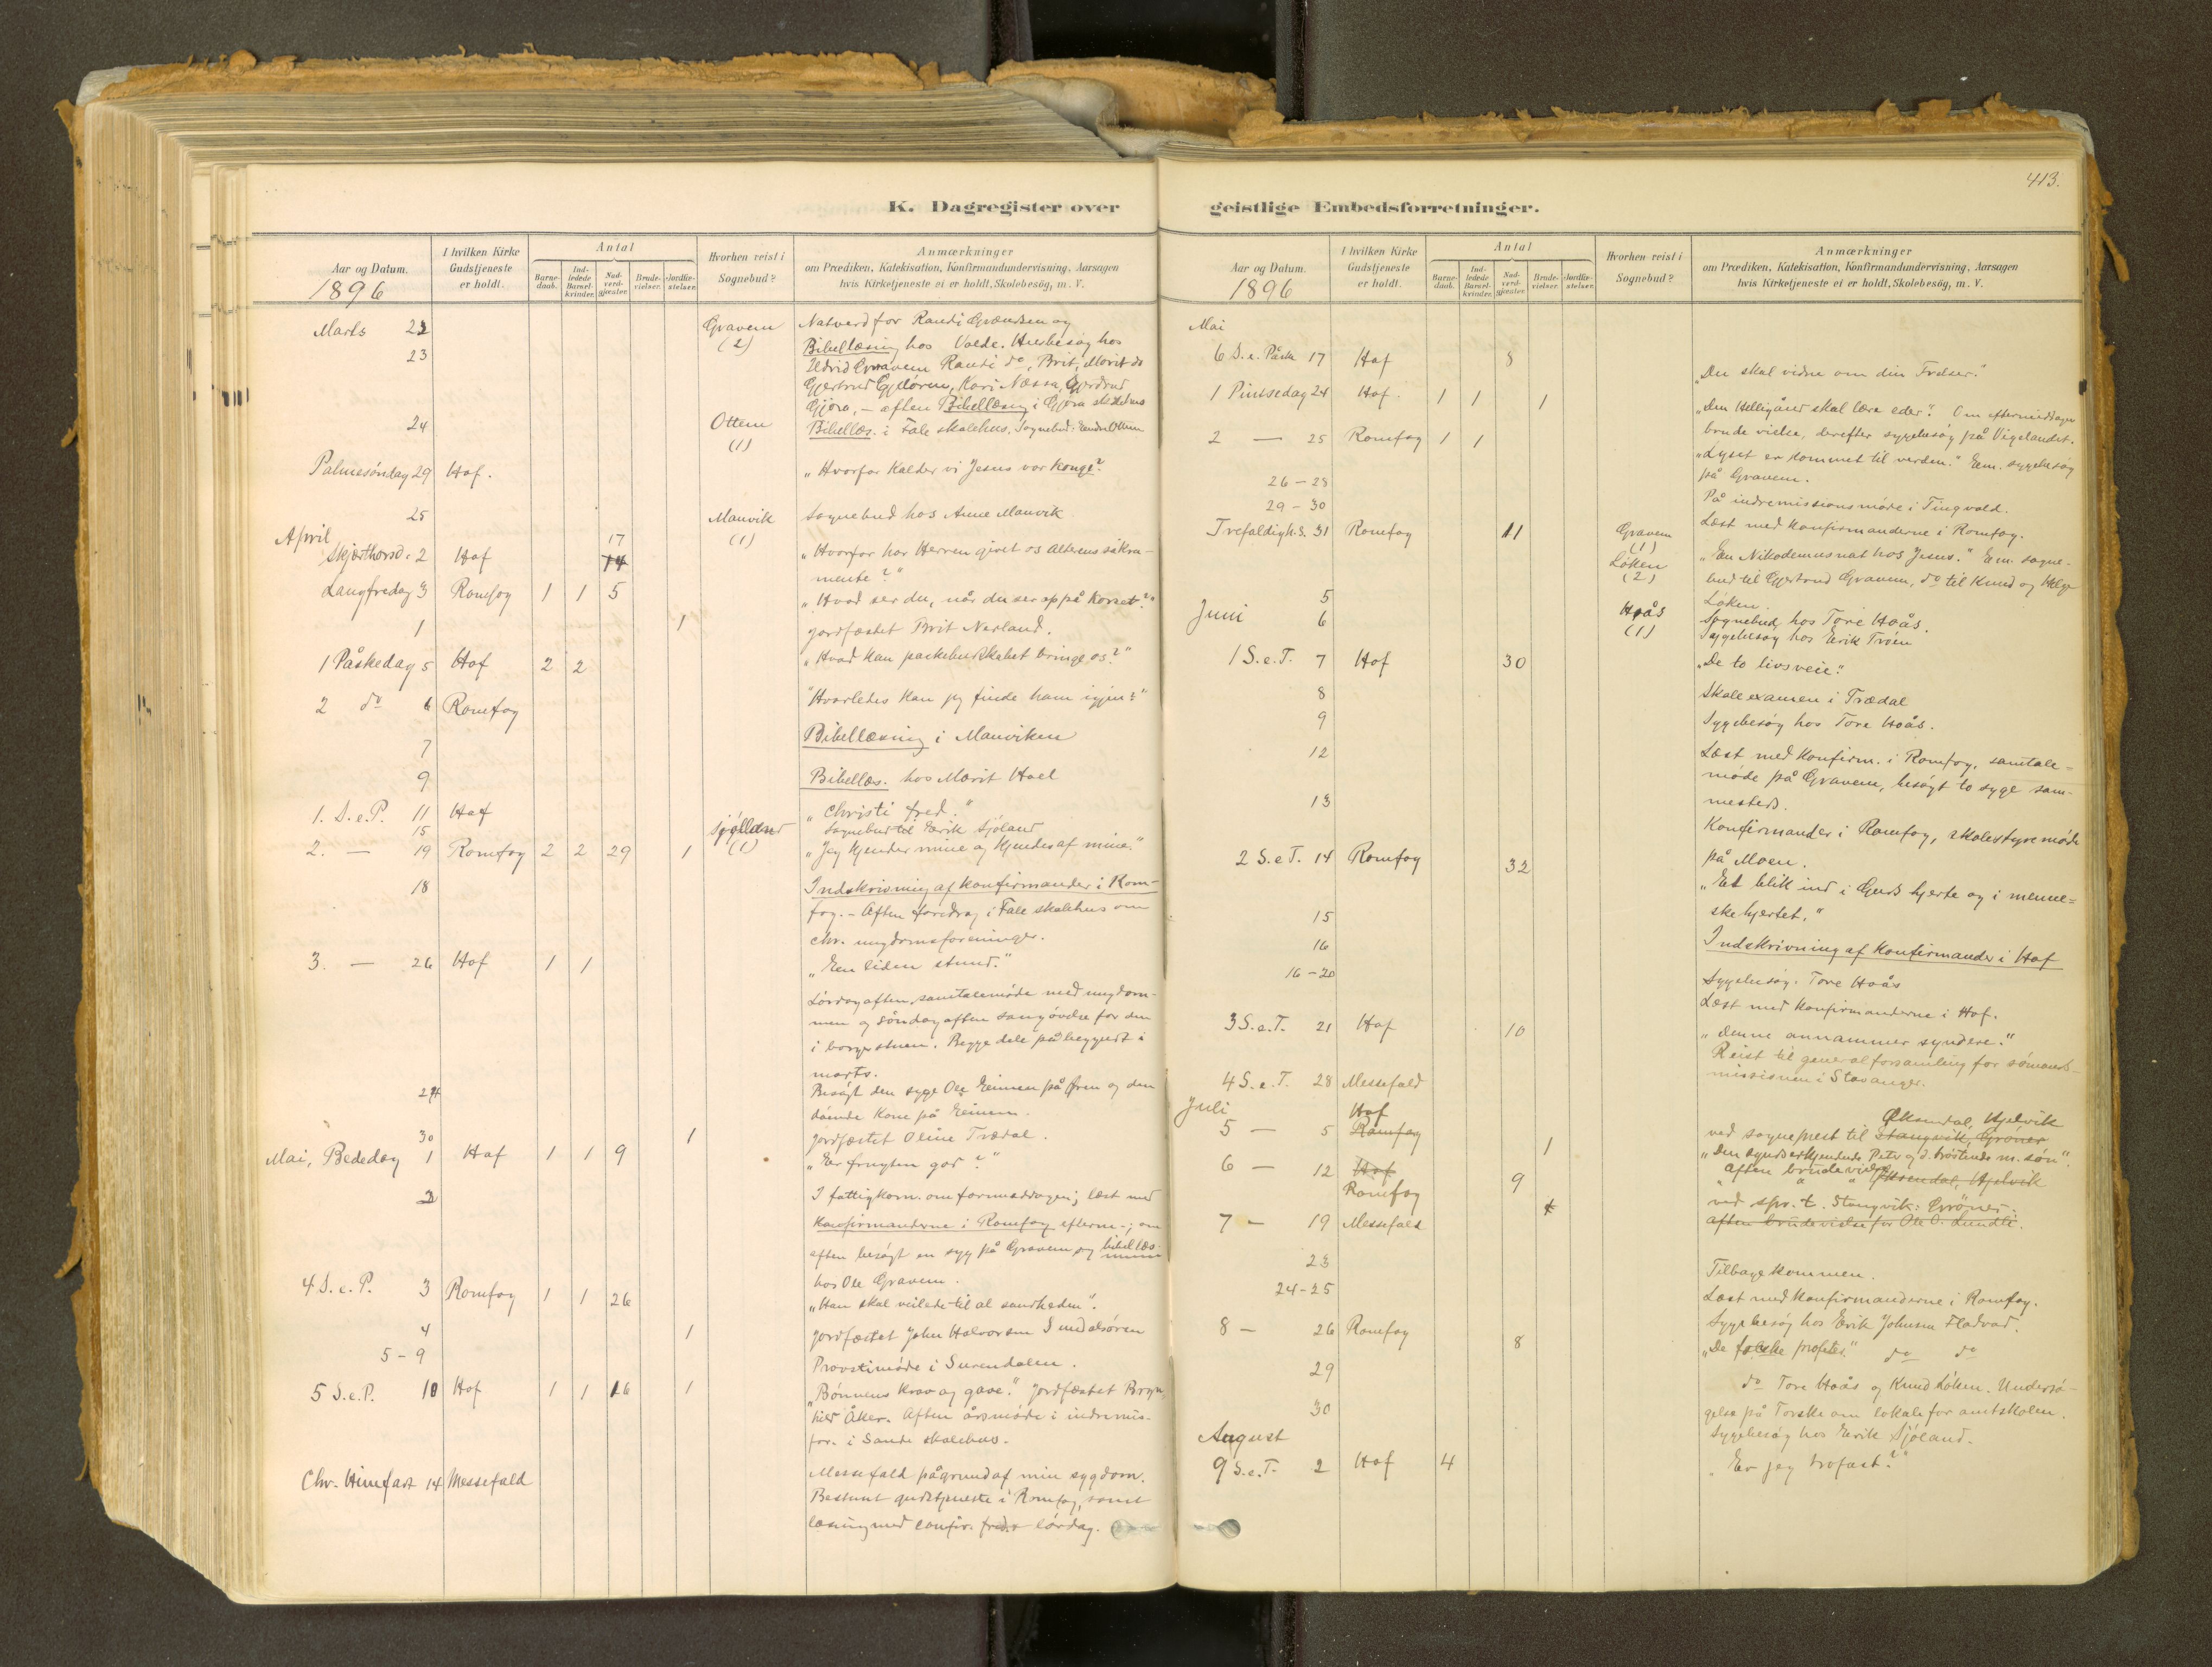 413.
K. Dagregister over
Aar og Datum.
1896
I hvilken Kirke
Gudstjeneste
er holdt.
Antal
Barne-
daab.
Ind-
ledede
Barsel-
kvinder.
Nad-
verd-
gjæster.
Brude-
vielser.
Jordfæ-
stelser.
Hvorhen reist i
Sognebud?
Anmærkninger
om Prædiken, Katekisation, Konfirmandundervisning, Aarsagen
hvis Kirketjeneste ei er holdt, Skolebesøg, m. V.
Marts 22 Gravem Natverd for Randi og
(2) Bibellæsning hos Valde. Husbesøg hos
23 Gravem Ranti do, Brit, Marit do
Gjertrud Kari Næssa, Gjertrud
Gjøra, – aften Bibellæsning i Gjøra
24 Ottem Bibellæs. i Fale skolehus. Sognebud: Ottem
(1)
Palmesøndag 29 Hof. "Hvorfor kalder vi Jesus vor konge?
25 Mauvik Sognebud hos Anne Mauvik
April (1)
17
Skjærthorsd. 2 Hof 14 "Hvorfor har Herren givet os alterens sakra-
mente?"
Langfredag 3 Romfog 1 1 5 "Hvad ser du, når du ser op på korset?"
1 1 jordfæstet Brit Nerland.
1 Påskedag 5 Hof 2 2 "Hvad kan paskebudskabet bringe os?"
2 do 6 Romfog "Hvorledes kan jeg finde ham igjen?"
7 Bibellæsning i Mauviken
9 Bibellæs. hos Marit Hoel
1. S.e.P. 11 Hof "Christi fred."
15 Sjølland Sognebud til Erik Sjøland
2. — 19 Romfog 2 2 29 1 (1) "Jeg kjender mine og kjendes af mine."
18 Indskrivning af konfirmander i Rom-
fog. – Aften foredrag i Fale skolehus om
chr. ungdomsforeninger.
3. — 26 Hof 1 1 "En liden stund."
Lørdag aften samtalemøde med ungdom-
men og søndag aften sangøvelse for den
i borgerstuen. Begge dele påbegyndt i
marts.
24 Besøgt den syge Ole på og den
døende Kone på
30 1 jordfæstet Oline Trædal.
Mai, Bededag 1 Hof 1 1 9 "Er frugten god?"
2 I fattigkom. om formiddagen; læst med
konfirmanderne i Romfog efterm.; om
aften besøgt en syg på Gravem og bibellæs-
hos Ole Gravem.
4 S.e.P. 3 Romfog 1 1 26 "Han skal veilede til al sandheden".
4 1 jordfæstet John Halvorsen Sundalsøren
5 – 9 Provstimøde i Surendalen.
5 S.e.P. 10 Hof 1 1 16 1 "Bønnens krav og gave." Jordfæstet Bryn-
hild Åker. Aften årsmøde i indremis-
for. i Sande skolehus.
Chr. Himfart 14 Messefald Messefald på grund af min sygdom.
Bestemt gudstjeneste i Romfog, samt
læsning med confir. lørdag.
geistlige Embedsforretninger.
Aar og Datum.
1896
I hvilken Kirke
Gudstjeneste
er holdt.
Antal
Barne-
daab.
Ind-
ledede
Barsel-
kvinder.
Nad-
verd-
gjæster.
Brude-
vielser.
Jordfæ-
stelser.
Hvorhen reist i
Sognebud?
Anmærkninger
om Prædiken, Katekisation, Konfirmandundervisning, Aarsagen
hvis Kirketjeneste ei er holdt, Skolebesøg, m. V.
Mai
6 S.e. Påsk 17 Hof 8 "Du skal vidne om din Frelser."
1 Pintsedag 24 Hof. 1 1 1 "Den Helligånd skal lære eder". Om eftermiddagen
brudevielse, derefter sygebesøg på Vigelandet.
2 — 25 Romfog 1 1 "Lyset er kommet til verden." Eem. sygebesøg
på Gravem.
26 – 28 På indremissionsmøde i Tingvold.
29 – 30 Læst med konfirmanderne i Romfog.
Trefoldigh.S. 31 Romfog 11 Gravem "En Nikodemusnat hos Jesus." Eem. sogne-
(1)
Løken bud til Gjertrud Gravem, do til Knud og Helge
(2) Løken.
5
Juni 6 Hoås Sognebud hos Tore Hoås.
(1) Sygebesøg hos Erik Trøen
1 S.e.T. 7 Hof 30 "De to livsveie."
8 Skoleexamen i Trædal
9 Sygebesøg hos Tore Hoås.
12 Læst med konfirm. i Romfog, samtale-
møde på Gravem, besøgt to syge sam-
mesteds.
13 Konfirmander i Romfog, skolestyremøde
på Moen.
2 S.e.T. 14 Romfog 32 "Et blik ind i Guds hjerte og i menne-
skehjertet."
15 Indskrivning af konfirmander i Hof
16 Sygebesøg. Tore Hoås
16 – 20 Læst med konfirmanderne i Hof.
3 S.e.T. 21 Hof 10 "Denne annammer syndere."
Reist til generalforsamling for sømands-
missionen i Stavanger.
4 S.e.T. 28 Messefald
Juli Hof Øksendal, Hjelvik
5 — 5 Romfog 1 ved sogneprest til Stangvik, Grøner
"Den Peter og d. trøstende m. søn".
6 — 12 Hof 9 aften brudevielse Øksendal, Hjelvik
Romfog ved spr. t. Stangvik: Grøner.
7 — 19 Messefald aften brudevielse for Ole O. Lundli.
23 Tilbagekommen.
24 – 25 Læst med konfirmanderne i Romfog.
Sygebesøg hos Erik Johnsen Flodvad.
8 — 26 Romfog 8 "De falske profeter." do do
29 do Tore Hoås og Knud Løken. Undersø-
gelse på Torske om lokale for amtskolen.
30 Sygebesøg hos Erik Sjøland.
August
9 S.e.T. 2 Hof 4 "Er jeg trofast?"